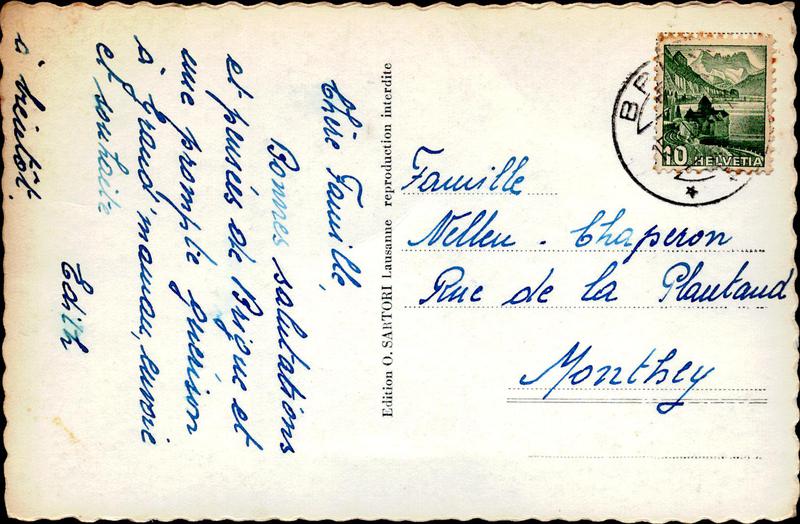 Chère Famille,
Bonnes salutations
et pensées de Brigue et
une prompte guérison
à Grand'maman, envoie
et souhaite
Edith
à bientôt.
Edition O. SARTORI Lausanne reproduction interdite
10 HELVETIA
Famille
Chaperon
Rue de la Plantaud
Monthey